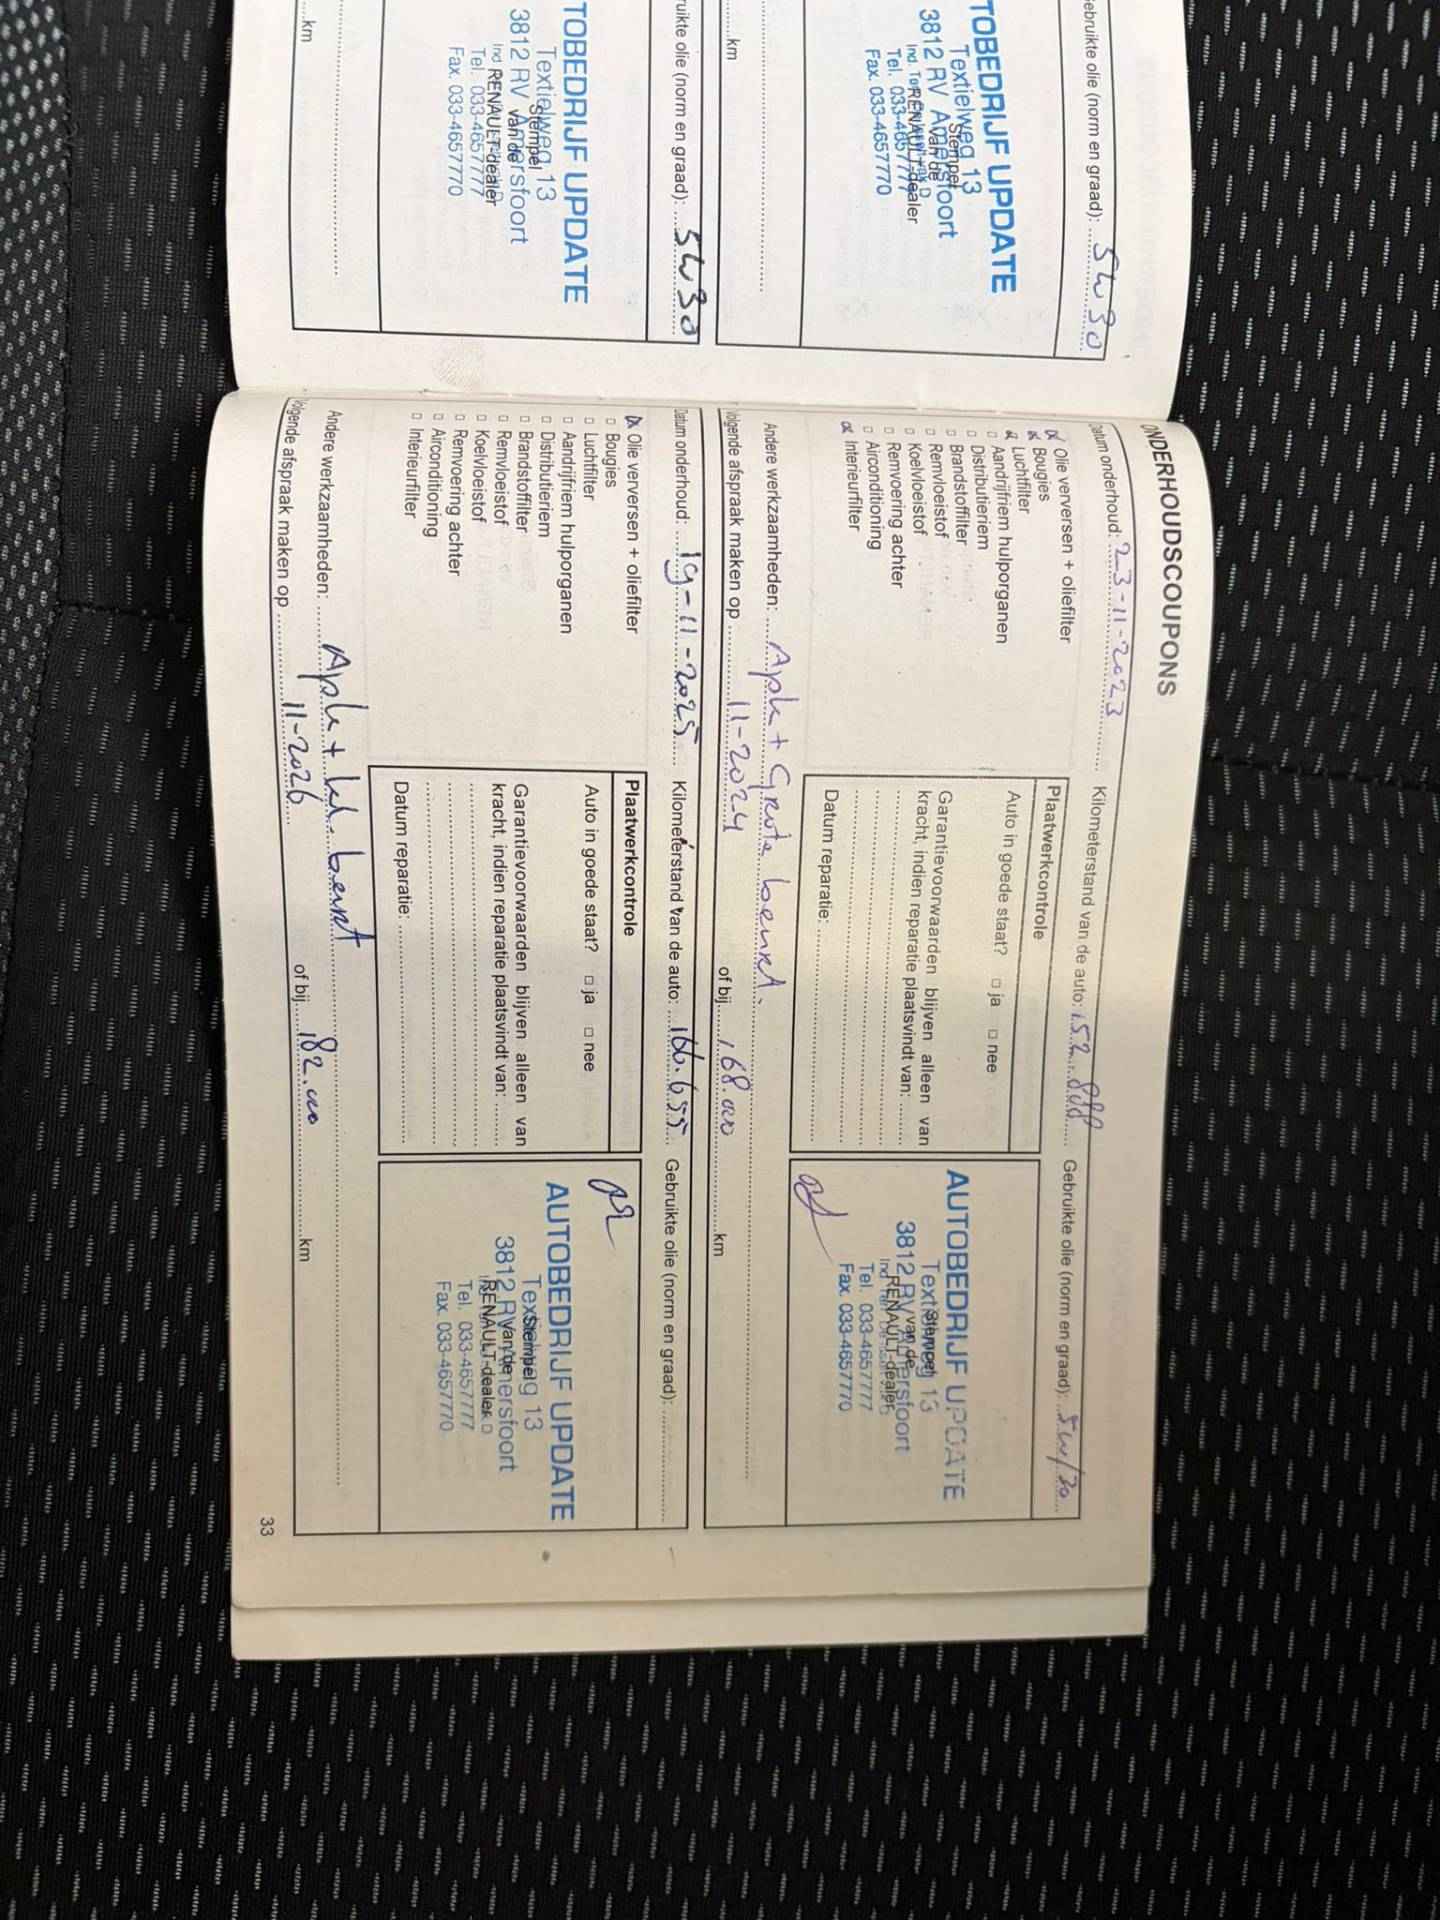 ebruikte olie (norm en graad): 5W30
TOBEDRIJF UPDATE
Textielweg 13
Stempel
3812 RV Amersfoort
van de
RENAULT-dealer
Tel. 033-4657777
Fax. 033-4657770
km
ruikte olie (norm en graad): 5W30
TOBEDRIJF UPDATE
Textielweg 13
Stempel
3812 RV Amersfoort
van de
RENAULT-dealer
Tel. 033-4657777
Fax. 033-4657770
km
ONDERHOUDSCOUPONS
Datum onderhoud: 23-11-2023 Kilometerstand van de auto: 152.888 Gebruikte olie (norm en graad): 5W/30
Olie verversen + oliefilter
Bougies
Luchtfilter
Aandrijfriem hulporganen
Distributieriem
Brandstoffilter
Remvloeistof
Koelvloeistof
Remvoering achter
Airconditioning
Interieurfilter
Plaatwerkcontrole
Auto in goede staat? ja nee
Garantievoorwaarden blijven alleen van
kracht, indien reparatie plaatsvindt van:
Datum reparatie:
AUTOBEDRIJF UPDATE
Textielweg 13
Stempel
3812 RV Amersfoort
van de
RENAULT-dealer
Tel. 033-4657777
Fax. 033-4657770
Andere werkzaamheden: Apk + Grote beurt.
Volgende afspraak maken op 11-2024 of bij 168.000 km
Datum onderhoud: 19-11-2025 Kilometerstand van de auto: 166.655 Gebruikte olie (norm en graad):
Olie verversen + oliefilter
Bougies
Luchtfilter
Aandrijfriem hulporganen
Distributieriem
Brandstoffilter
Remvloeistof
Koelvloeistof
Remvoering achter
Airconditioning
Interieurfilter
Plaatwerkcontrole
Auto in goede staat? ja nee
Garantievoorwaarden blijven alleen van
kracht, indien reparatie plaatsvindt van:
Datum reparatie:
AUTOBEDRIJF UPDATE
Textielweg 13
Stempel
3812 RV Amersfoort
van de
RENAULT-dealer
Tel. 033-4657777
Fax. 033-4657770
Andere werkzaamheden: Apk + kl. beurt
Volgende afspraak maken op 11-2026 of bij 182.000 km
33